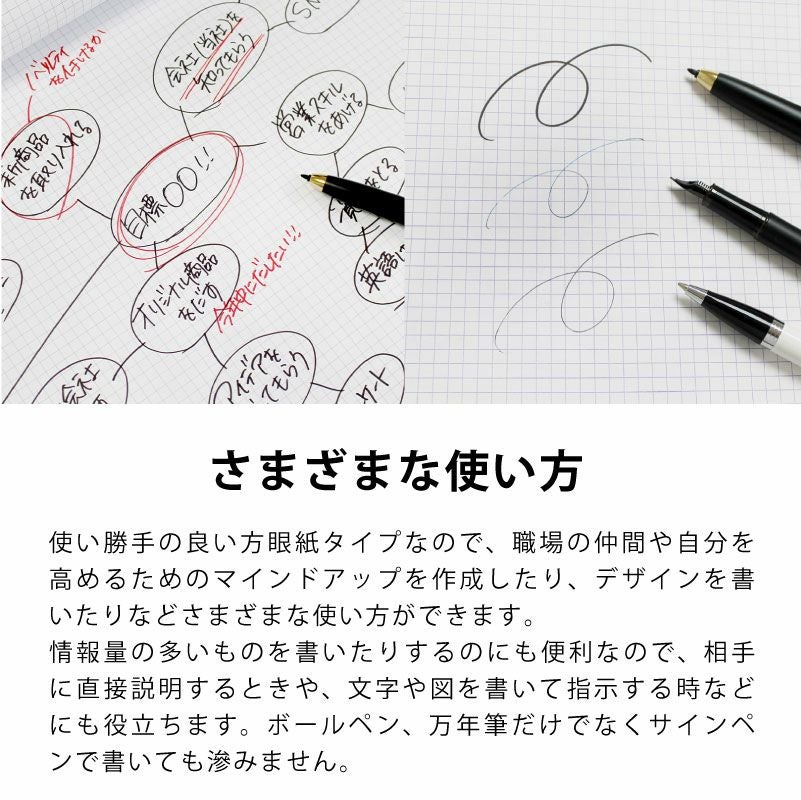 バリエティ
も付けるか
会社(当社)を
知ってもらう
営業スキル
をあげる
新商品
を取り入れる
目標〇〇!!
オリジナル商品
をだす
今年中にだしたい!!
英語
会社
アイデアを
してもらう
さまざまな使い方
使い勝手の良い方眼紙タイプなので、職場の仲間や自分を
高めるためのマインドアップを作成したり、デザインを書
いたりなどさまざまな使い方ができます。
情報量の多いものを書いたりするのにも便利なので、相手
に直接説明するときや、文字や図を書いて指示する時など
にも役立ちます。ボールペン、万年筆だけでなくサインペ
ンで書いても滲みません。